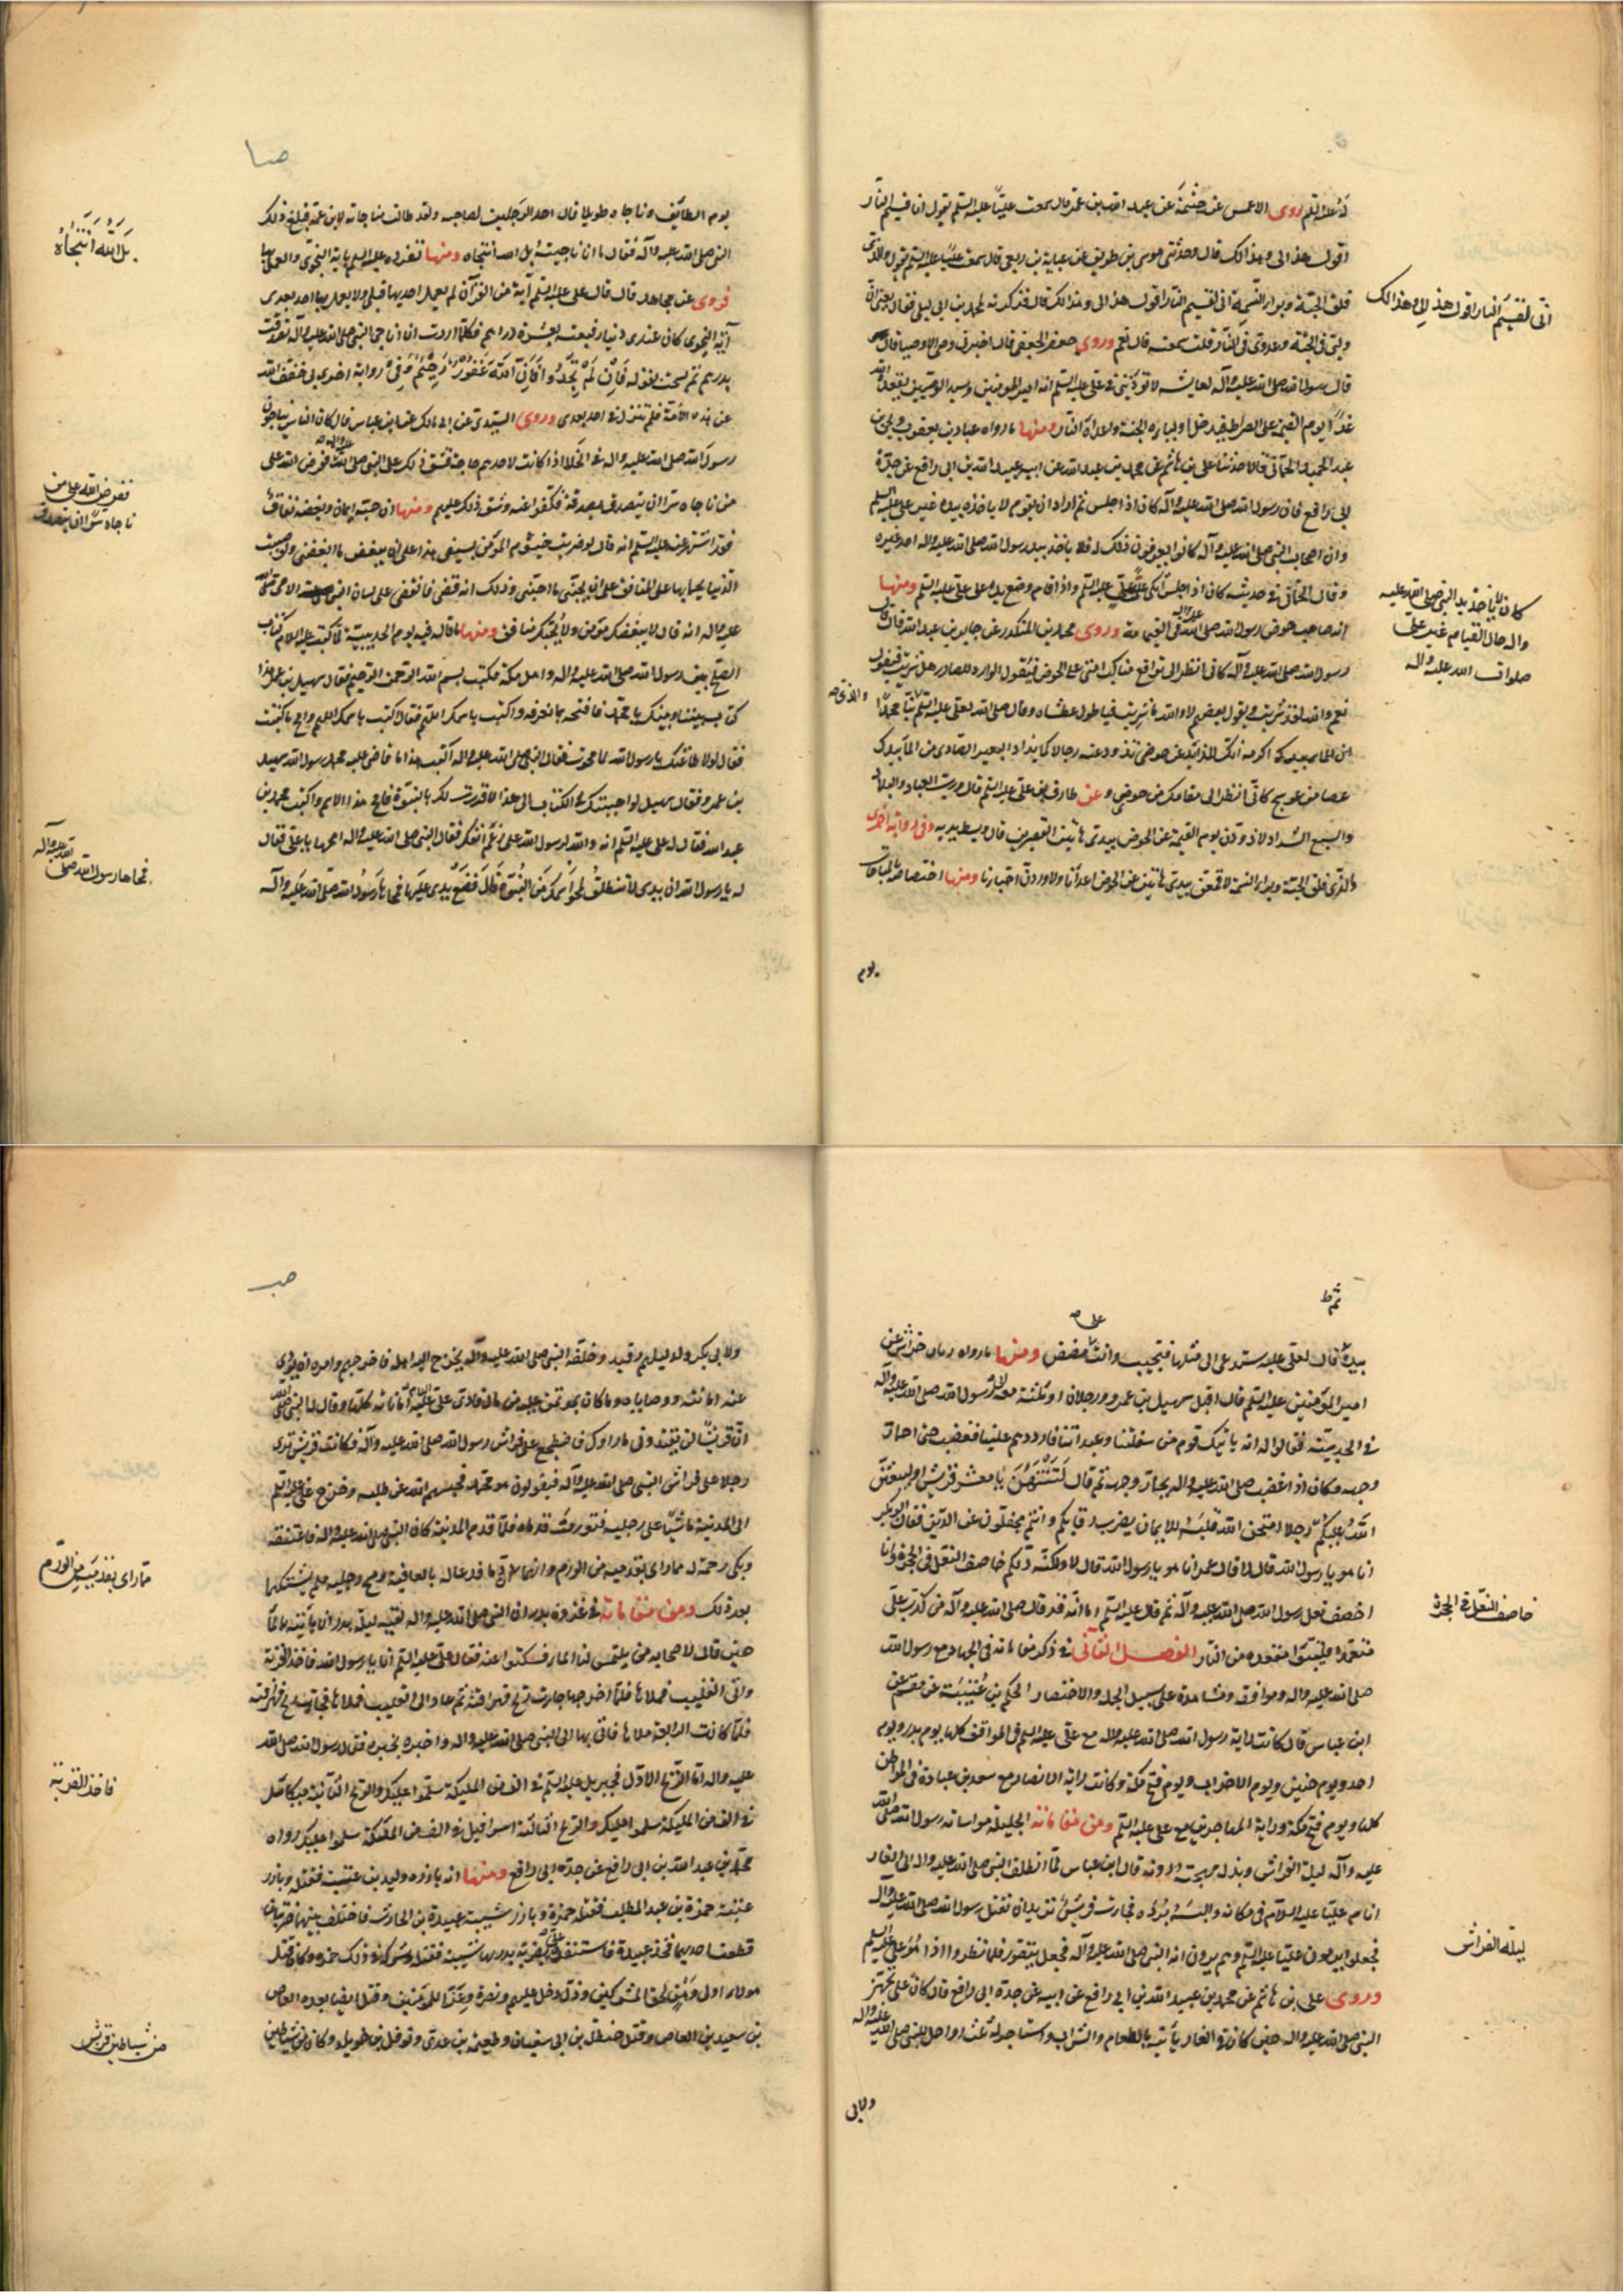 روى الاعمش عن خيثمة عن عبد الله بن عمر قال سمعت عليا عليه السلم يقول انا قسيم النار
اقول هذا لى وهذا لك قال وحدثنى موسى بن طريف عن عباية بن ربعى قال سمعت عليا عليه السلم يقول والذى
فلق الحبة وبرا النسمة انى لقسيم النار اقول هذا لى وهذا لك قال فذكرته لمحمد بن ابى ليلى فقال يعنى ان
وليى فى الجنة وعدوى فى النار قلت سمعته قال نعم وروى جعفر الجعفى قال اخبرنى وصى الاوصيا قال
قال رسول الله صلى الله عليه وآله لعايشه لا تؤذينى فى على عليه السلم انه امير المؤمنين وسيد الوصيين يقعده الله
غدا يوم القيمة على الصراط فيدخل اولياءه الجنة واعداه النار ومنها ما رواه عباد بن يعقوب ويحيى بن
عبد الحميد الحمانى قالا حدثنا على بن هاشم عن محمد بن عبيد الله عن ابيه عبيد الله بن ابى رافع عن جده
ابى رافع قال ان رسول الله صلى الله عليه وآله كان اذا جلس ثم اراد ان يقوم لا ياخذ بيده غير على عليه السلم
وان اصحاب النبى صلى الله عليه وآله كانوا يعرفون ذلك له فلا ياخذ بيد رسول الله صلى الله عليه واله احد غيره
وقال الحمانى فى حديثه كان اذا جلس اتكى على على عليه السلم واذا قام وضع يده على على عليه السلم ومنها
انه صاحب حوض رسول الله صلى الله عليه واله فى القيمة وروى محمد بن المنكدر عن جابر بن عبد الله قال قال
رسول الله صلى الله عليه وآله كانى انظر الى تدافع مناكب امتى على الحوض فيقول الوارد للصادر هل شربت فيقول
نعم والله لقد شربت ويقول بعضهم لا والله ما شربت فيا طول عطشاه وقال صلى الله لعلى عليه السلم والذى نبا محمدا
واكرمه انك لذائد عن حوضى تذود عنه رجالا كما يذاد البعير الصادى عن الماء بيدك
عصا من عوسج كانى انظر الى مقامك من حوضى وعن طارق عن على عليه السلم قال ورب العباد والبلاد
والسبع الشداد لاذودن يوم القيمة عن الحوض بيدى هاتين القصيرتين قال وبسط يديه وفى رواية اخرى
والذى فلق الحبة وبرا النسمة لاقمعن بيدى هاتين عن الحوض اعداءنا ولاوردن احباءنا ومنها اختصاصه بالمناجات
يوم
انى لقسيم النار اقول هذا لى وهذا لك
كان لا ياخذ بيد النبى صلى الله عليه
واله حال القيام غير على
صلوات الله عليه واله
صا
يوم الطائف وناجاه طويلا قال احد الرجلين لصاحبه ولقد طالت مناجاته لابن عمه فبلغ ذلك
النبى صلى الله عليه وآله فقال ما انا ناجيته بل الله انتجاه ومنها تفرده عليه السلم باية النجوى والعمل بها
فروى عن مجاهد قال قال على عليه السلم آية من القرآن لم يعمل احد بها قبلى ولا يعمل بها احد بعدى
آية النجوى كان عندى دينار فبعته بعشرة دراهم فكلما اردت ان اناجى النبى صلى الله عليه وآله تصدقت
بدرهم ثم نسخت بقوله فَاِنْ لَمْ تَجِدُوا فَاِنَّ اللهَ غَفُورٌ رَحِيمٌ وفى رواية اخرى بى خفف الله
عن هذه الامة فلم تنزل فى احد بعدى وروى السدى عن ابى مالك عن ابن عباس قال كان الناس يناجون
رسول الله صلى الله عليه واله فى الخلا اذا كانت لاحدهم حاجة فشق ذلك على النبى صلى الله عليه واله ففرض الله على
من ناجاه سرا ان يتصدق بصدقة فكفوا عنه وشق ذلك عليهم ومنها ان حبه ايمان وبغضه نفاق
فقد اشتهر عنه عليه السلم انه قال لو ضربت خيشوم المؤمن بسيفى هذا على ان يبغضنى ما ابغضنى ولو صببت
الدنيا بجماتها على المنافق على ان يحبنى ما احبنى وذلك انه قضى فانقضى على لسان النبى الامى صلى الله
عليه واله انه قال لا يبغضك مؤمن ولا يحبك منافق ومنها ما قاله فيه يوم الحديبية لما كتب عليه السلام كتاب
الصلح بين رسول الله صلى الله عليه واله واهل مكة فكتب بسم الله الرحمن الرحيم فقال سهيل بن عمرو هذا
كتاب بيننا وبينك يا محمد فافتحه بما نعرفه واكتب باسمك اللهم فقال اكتب باسمك اللهم وامح ما كتبت
فقال لولا طاعتك يا رسول الله لما محوت فقال النبى صلى الله عليه واله اكتب هذا ما قاضى عليه محمد رسول الله سهيل
بن عمرو فقال سهيل لو اجبتك فى الكتاب الى هذا لاقررت لك بالنبوة فامح هذا الاسم واكتب محمد بن
عبد الله فقال له على عليه السلم انه والله لرسول الله على رغم انفك فقال النبى صلى الله عليه واله امحها يا على فقال
له يا رسول الله ان يدى لا تنطلق لمحو اسمك من النبوة قال فضع يدى عليها فمحاها رسول الله صلى الله عليه وآله
بل الله انتجاه
ففرض الله على من
ناجاه سرا ان يتصدق
فمحاها رسول الله صلى الله عليه وآله
بيده وقال لعلى عليه ستدعى الى مثلها فتجيب وانت على مضض ومنها ما رواه ربعى بن خراش عن
امير المؤمنين عليه السلم قال اقبل سهيل بن عمرو ورجلان او ثلثة معه الى رسول الله صلى الله عليه وآله
فى الحديبية فقالوا له انه ياتيك قوم من سفلتنا وعبداننا فارددهم علينا فغضب حتى احمار
وجهه وكان اذا غضب صلى الله عليه واله يحمار وجهه ثم قال لَتَنْتَهُنَّ يا معشر قريش او ليبعثن
الله عليكم رجلا امتحن الله قلبه للايمان يضرب رقابكم وانتم مجفلون عن الدين فقال ابو بكر
انا هو يا رسول الله قال لا قال عمر انا هو يا رسول الله قال لا ولكنه ذلكم خاصف النعل فى الحجرة وانا
اخصف نعل رسول الله صلى الله عليه وآله ثم قال عليه السلم اما انه قد قال صلى الله عليه وآله من كذب على
متعمدا فليتبوأ مقعده من النار الفصل الثانى فى ذكر مقاماته فى الجهاد مع رسول الله
صلى الله عليه واله ومواقفه ومشاهده على سبيل الجملة والاختصار الحكم بن عتيبة عن مقسم عن
ابن عباس قال كانت راية رسول الله صلى الله عليه واله مع على عليه السلم فى المواقف كلها يوم بدر ويوم
احد ويوم حنين ويوم الاحزاب ويوم فتح مكة وكانت راية الانصار مع سعد بن عبادة فى المواطن
كلها ويوم فتح مكة وراية المهاجرين مع على عليه السلم ومن مقاماته الجليلة مواساته رسول الله صلى الله
عليه وآله ليلة الفراش وبذله مهجته دونه قال ابن عباس لما انطلق النبى صلى الله عليه واله الى الغار
انام عليا عليه السلام فى مكانه والبسه برده فجاءت قريش تريد ان تقتل رسول الله صلى الله عليه واله
فجعلوا يرمون عليا عليه السلم وهم يرون انه النبى صلى الله عليه وآله فجعل يتضور فلما نظروا اذا هو على عليه السلم
وروى على بن هاشم عن محمد بن عبيد الله بن ابى رافع عن ابيه عن جده ابى رافع قال كان على يجهز
النبى صلى الله عليه واله حين كان فى الغار ياتيه بالطعام والشراب واستاجر له ثلث رواحل للنبى صلى الله عليه واله
ولابى
خاصف النعل فى الحجرة
ليلة الفراش
صب
ولابى بكر ولدليلهم رقيد وخلفه النبى صلى الله عليه وآله يخرج اليه اهله فاخرجهم وامره ان يؤدى
عنه امانته ووصاياه وما كان يؤتمن عليه من مال فادى على عليه السلم اماناته كلها وقال له النبى صلى الله
ان قريشا لن يفتقدونى ما راوك فاضطجع على فراش رسول الله صلى الله عليه وآله فكانت قريش ترى
رجلا على فراش النبى صلى الله عليه وآله فيقولون هو محمد فحبسهم الله عن طلبه وخرج على عليه السلم
الى المدينة ماشيا على رجليه فتورمت قدماه فلما قدم المدينة رآه النبى صلى الله عليه واله فاعتنقه
وبكى رحمة له مما راى بقدميه من الورم وانهما تقطران دما فدعا له بالعافية ومسح رجليه فلم يشتكهما
بعد ذلك ومن مقاماته فى غزوة بدر ان النبى صلى الله عليه واله بعثه ليلة بدر ان ياتيه بالماء
حين قال لاصحابه من يلتمس لنا الماء فسكتوا عنه فقال على عليه السلم انا يا رسول الله فاخذ القربة
واتى القليب فملاها فلما اخرجها جاءت ريح فهراقته ثم عاد الى القليب فملاها فجاءت ريح فهراقته
فلما كانت الرابعة ملاها فاتى بها الى النبى صلى الله عليه واله واخبره بخبره فقال رسول الله صلى الله
عليه واله اما الريح الاولى فجبريل عليه السلم فى الف من المليكة سلموا عليك والريح الثانية ميكائيل
فى الف من المليكة سلموا عليك والريح الثالثة اسرافيل فى الف من الملئكة سلموا عليك رواه
محمد بن عبيد الله بن ابى رافع عن جده ابى رافع ومنها انه بارزه وليد بن عتبة فقتله وبارز
عتبة حمزة بن عبد المطلب فقتله حمزة وبارز شيبة عبيدة بن الحارث فاختلف بينهما ضربتان
قطعت احديهما فخذ عبيدة فاستنقذه على بضربة بدر بها شيبة فقتله وشركه فى ذلك حمزة وكان قتل
هولاء اول وهن لحق المشركين وذل دخل عليهم ونصرة وعز للمؤمنين وقتل ايضا بعده العاص
بن سعيد بن العاص وقتل حنظلة بن ابى سفيان وطعيمة بن عدى ونوفل بن خويلد وكان من شياطين
مما راى بقدميه من الورم
فاخذ القربة
من شياطين قريش